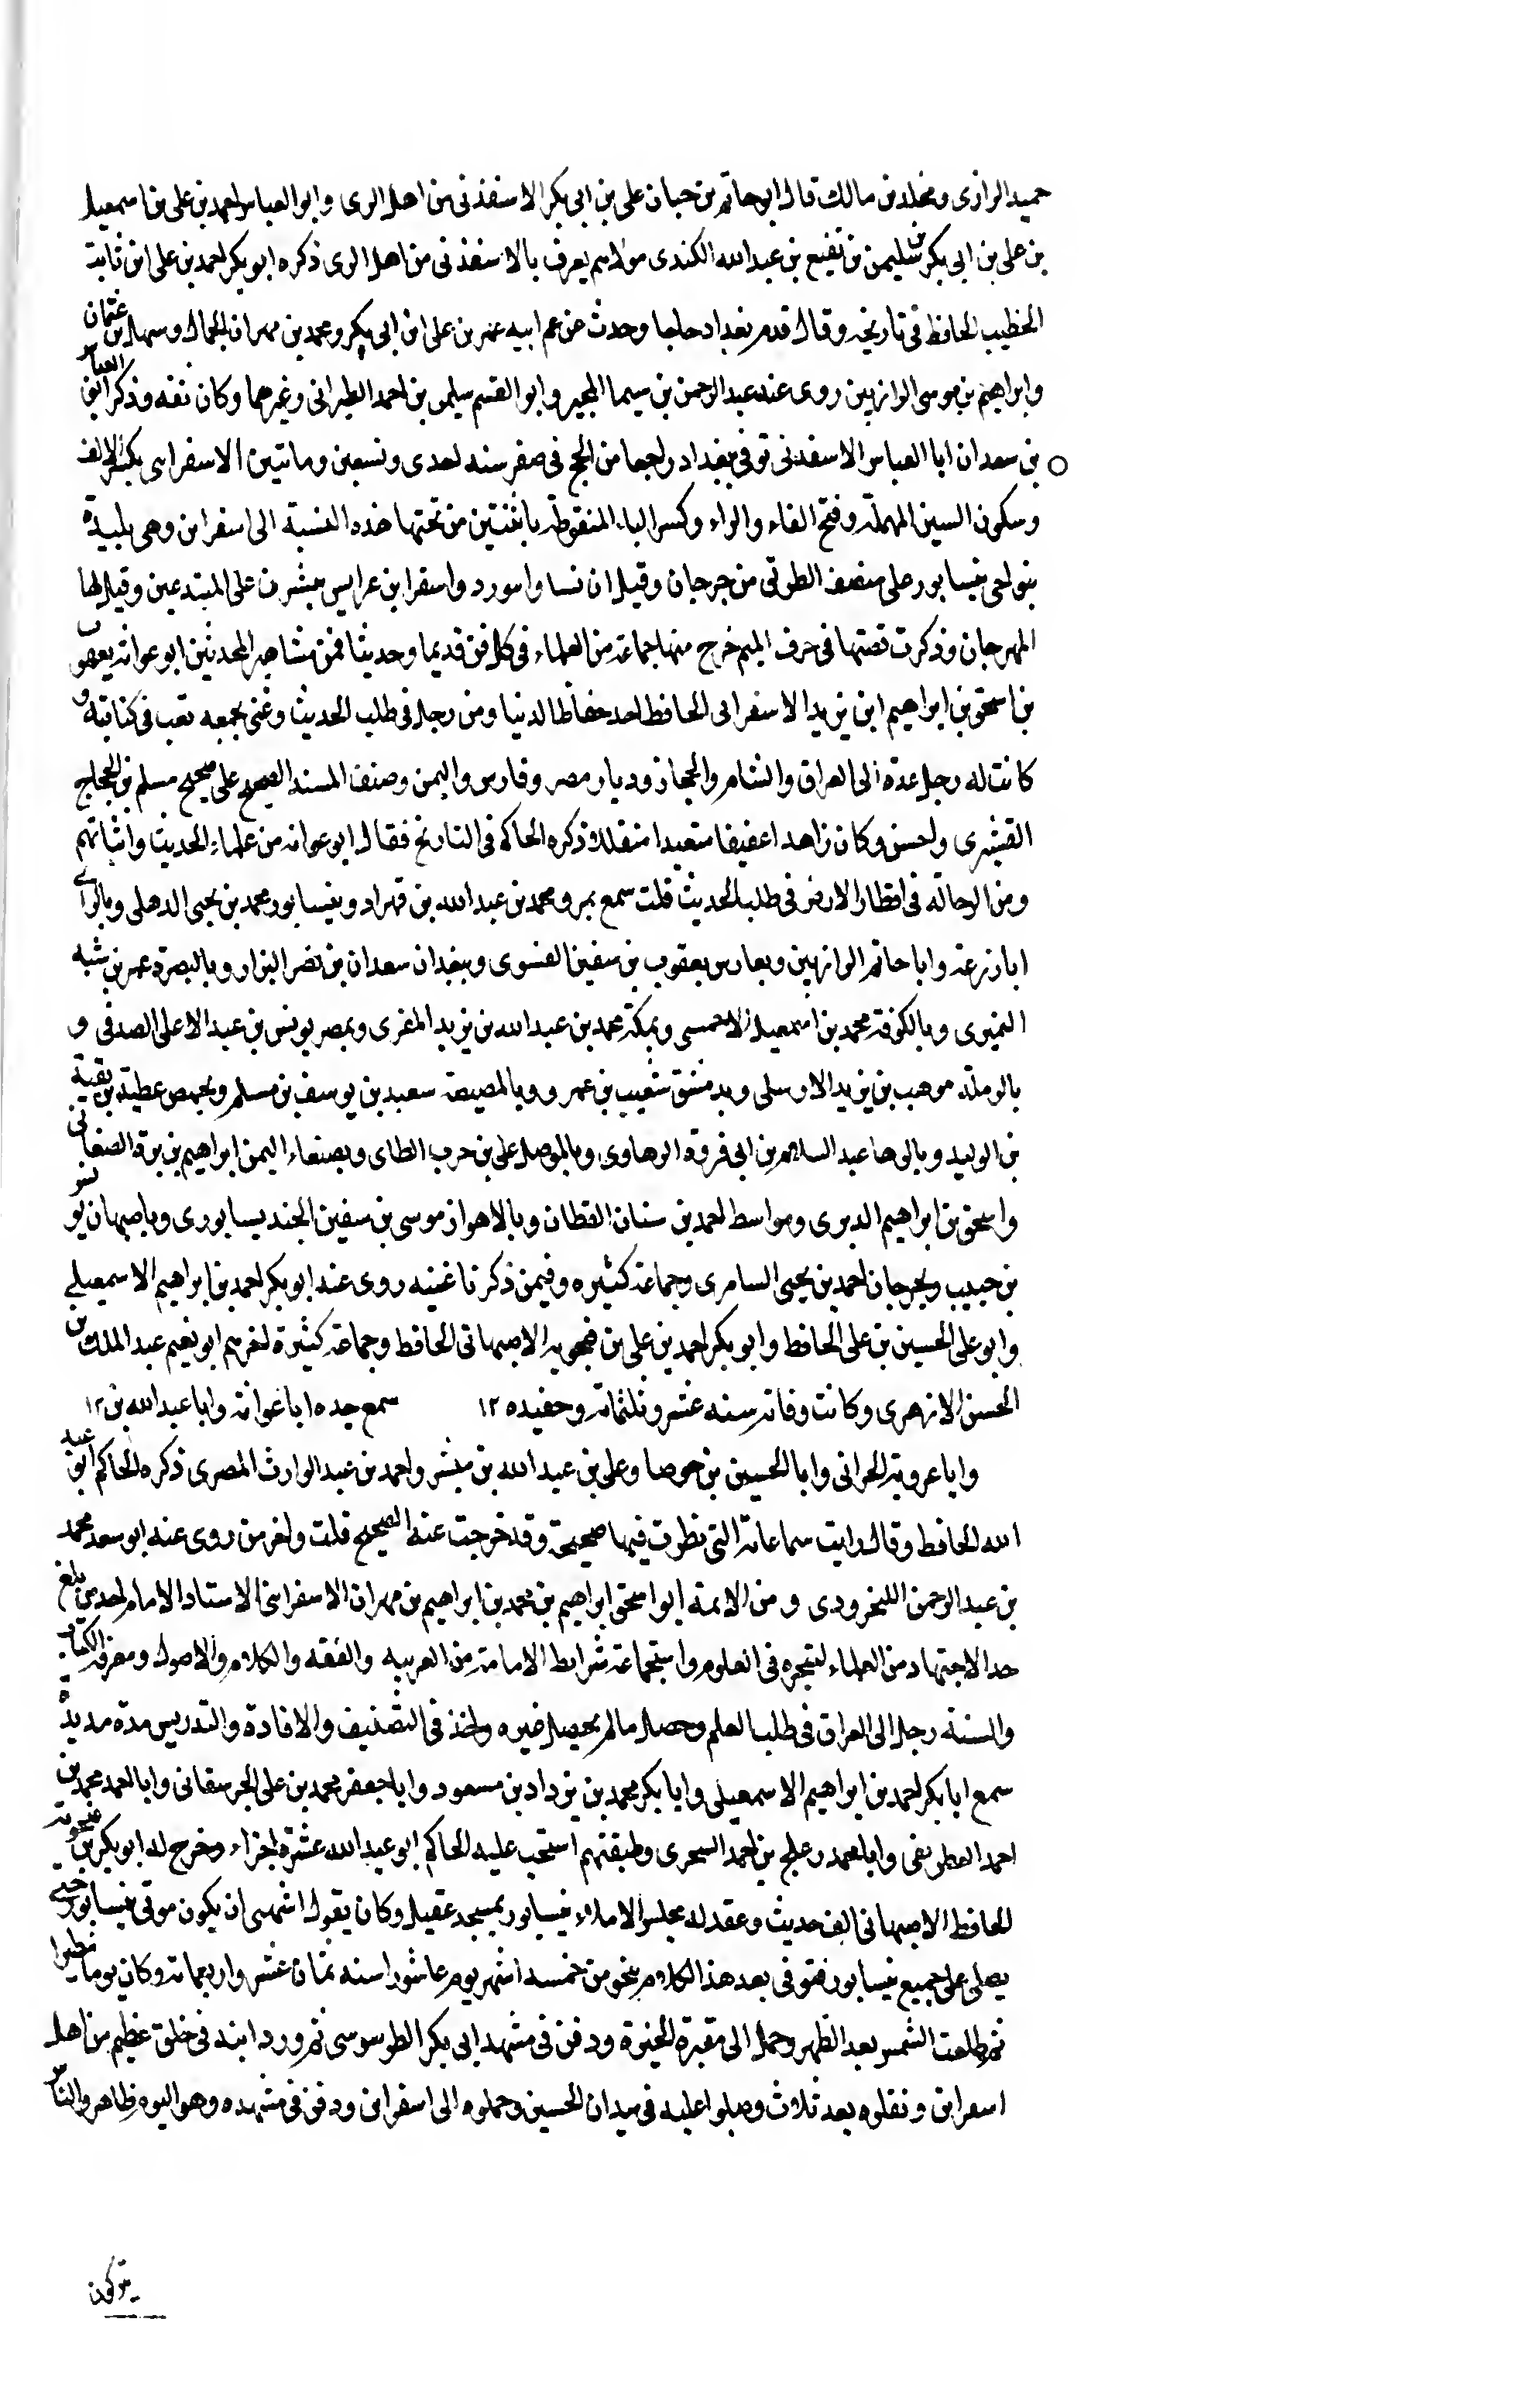 حميد الرازى ومخلد بن مالك قال ابو حاتم بن حبان على بن ابى بكر الاسفذنى من اهل الرى وابو العباس احمد بن على بن اسمعيل
بن على بن ابى بكر بن سليمن بن نفيع بن عبد الله الكندى مولاهم يعرف بالاسفذنى من اهل الرى ذكره ابو بكر احمد بن على ابن ثابت
الخطيب الحافظ فى تاريخه وقال قدم بغداد حاجا وحدث عن عم ابيه عمر بن على ابن ابى بكر ومحمد بن مهران الجمال وسهل بن عثمان
وابراهيم بن موسى الرازيين روى عنه عبد الرحمن بن سيما المجبر وابو القسم سليمن بن احمد الطبرانى وغيرهما وكان ثقه وذكر ابو العباس
بن سعد ان ابا العباس الاسفذنى توفى ببغداد راجعا من الحج فى صفر سنه احدى وتسعين وماتتين الاسفراىى بكسر الالف
وسكون السين المهملة وفتح الفاء والراء وكسر الياء المنقوطة باثنتين من تحتها هذه النسبة الى اسفراين وهى بليدة
بنواحى نيسابور على منصف الطريق من جرجان وقيل ان نسا وابيورد واسفراين عرايس ينشرن على المبتدعين وقيل لها
المهرجان وذكرت قصتها فى حرف الميم خرج منها جماعة من العلماء فى كل فن قديما وحديثا فمن مشاهير المحدثين ابو عوانه يعقوب
بن اسحق بن ابراهيم ابن يزيد الاسفراىى الحافظ احد حفاظ الدنيا ومن رحل فى طلب الحديث وعنى بجمعه تعب فى كتابته و
كانت له رحل عدة الى العراق والشام والحجاز وديار مصر وفارس واليمن وصنف المسند الصحيح على صحيح مسلم بن الحجاج
القشيرى واحسن وكان زاهدا عفيفا متعبدا متقللا ذكره الحاكم فى التاريخ فقال ابو عوانه من علماء الحديث واثباتهم
ومن الرحالة فى اقطار الارض فى طلب الحديث قلت سمع بمرو محمد بن عبد الله بن قهزاد وبنيسابور محمد بن يحيى الذهلى وبالرى
ابا زرعة وابا حاتم الرازيين وبفارس يعقوب بن سفين الفسوى وببغداد سعدان بن نصر البزار وبالبصرة عمر بن شبه
النميرى وبالكوفة محمد بن اسمعيل الاحمسى وبمكة محمد بن عبد الله بن يزيد المقرى وبمصر يونس بن عبد الاعلى الصدفى و
بالرملة موهب بن يزيد الارسلى وبدمشق شعيب بن عمرو وبالمصيصة سعيد بن يوسف بن مسلم وبحمص عطية بن بقية
بن الوليد وبالرها عبد السلام بن ابى فروة الرهاوى وبالموصل على بن حرب الطاى وبصنعاء اليمن ابراهيم بن برة الصنعانى
واسحق بن ابراهيم الدبرى وبواسط احمد بن سنان القطان وبالاهواز موسى بن سفين الجنديسابورى وباصبهان يونس
بن حبيب وبجرجان احمد بن يحيى السامرى وجماعة كثيره وفيمن ذكرنا غنيه روى عنه ابو بكر احمد بن ابراهيم الاسمعيلى
وابو على الحسين بن على الحافظ وابو بكر احمد بن على بن فنجويه الاصبهانى الحافظ وجماعة كثيرة اخرهم ابو نعيم عبد الملك بن
الحسن الازهرى وكانت وفاته سنه عشر وثلثمائه وحفيده ١٢ سمع جده ابا عوانة وابا عبد الله بن ١٢
وابا عروبة الحرانى وابا الحسين بن حوصا وعلى بن عبد الله بن مبشر واحمد بن عبد الوارث المصرى ذكره الحاكم ابو عبد
الله الحافظ وقال رايت سماعاته التى نظرت فيها صحيحة وقد خرجت عنه الصحيح قلت واخر من روى عنه ابو سعد محمد
بن عبد الرحمن الكنجرودى ومن الائمة ابو اسحق ابراهيم بن محمد بن ابراهيم بن مهران الاسفراىنى الاستاد الامام احد من بلغ
حد الاجتهاد من العلماء لتبحره فى العلوم واستجماعه شرايط الامامة من العربيه والفقه والكلام والاصول ومعرفة الكتاب
والسنة رحل الى العراق فى طلب العلم وحصل ما لم يحصل غيره واخذ فى التصنيف والافادة والتدريس مدة مديدة
سمع ابا بكر احمد بن ابراهيم الاسمعيلى وابا بكر محمد بن يزداد بن مسعود وابا جعفر محمد بن على الجوسقانى وابا احمد محمد بن
احمد الغطريفى وابا محمد دعلج بن احمد السجزى وطبقتهم انتخب عليه الحاكم ابو عبد الله عشرة اجزاء وخرج له ابو بكر بن منجويه
الحافظ الاصبهانى الف حديث وعقد له مجلس الاملاء بنيسابور بمسجد عقيل وكان يقول اشتهى ان يكون موتى بنيسابور حتى
يصلى على جميع نيسابور فتوفى بعد هذا الكلام بنحو من خمسه اشهر يوم عاشورا سنه ثمان عشر واربعماىة وكان يوما مطيرا
ثم طلعت الشمس بعد الظهر وحمل الى مقبرة الحيرة ودفن فى مشهد ابى بكر الطرسوسى ثم ورد ابنه فى خلق عظيم من اهل
اسفراين ونقلوه بعد ثلاث وصلوا عليه فى ميدان الحسين وحملوه الى اسفراين ودفن فى مشهده وهو اليوم ظاهر والناس
يتبركون